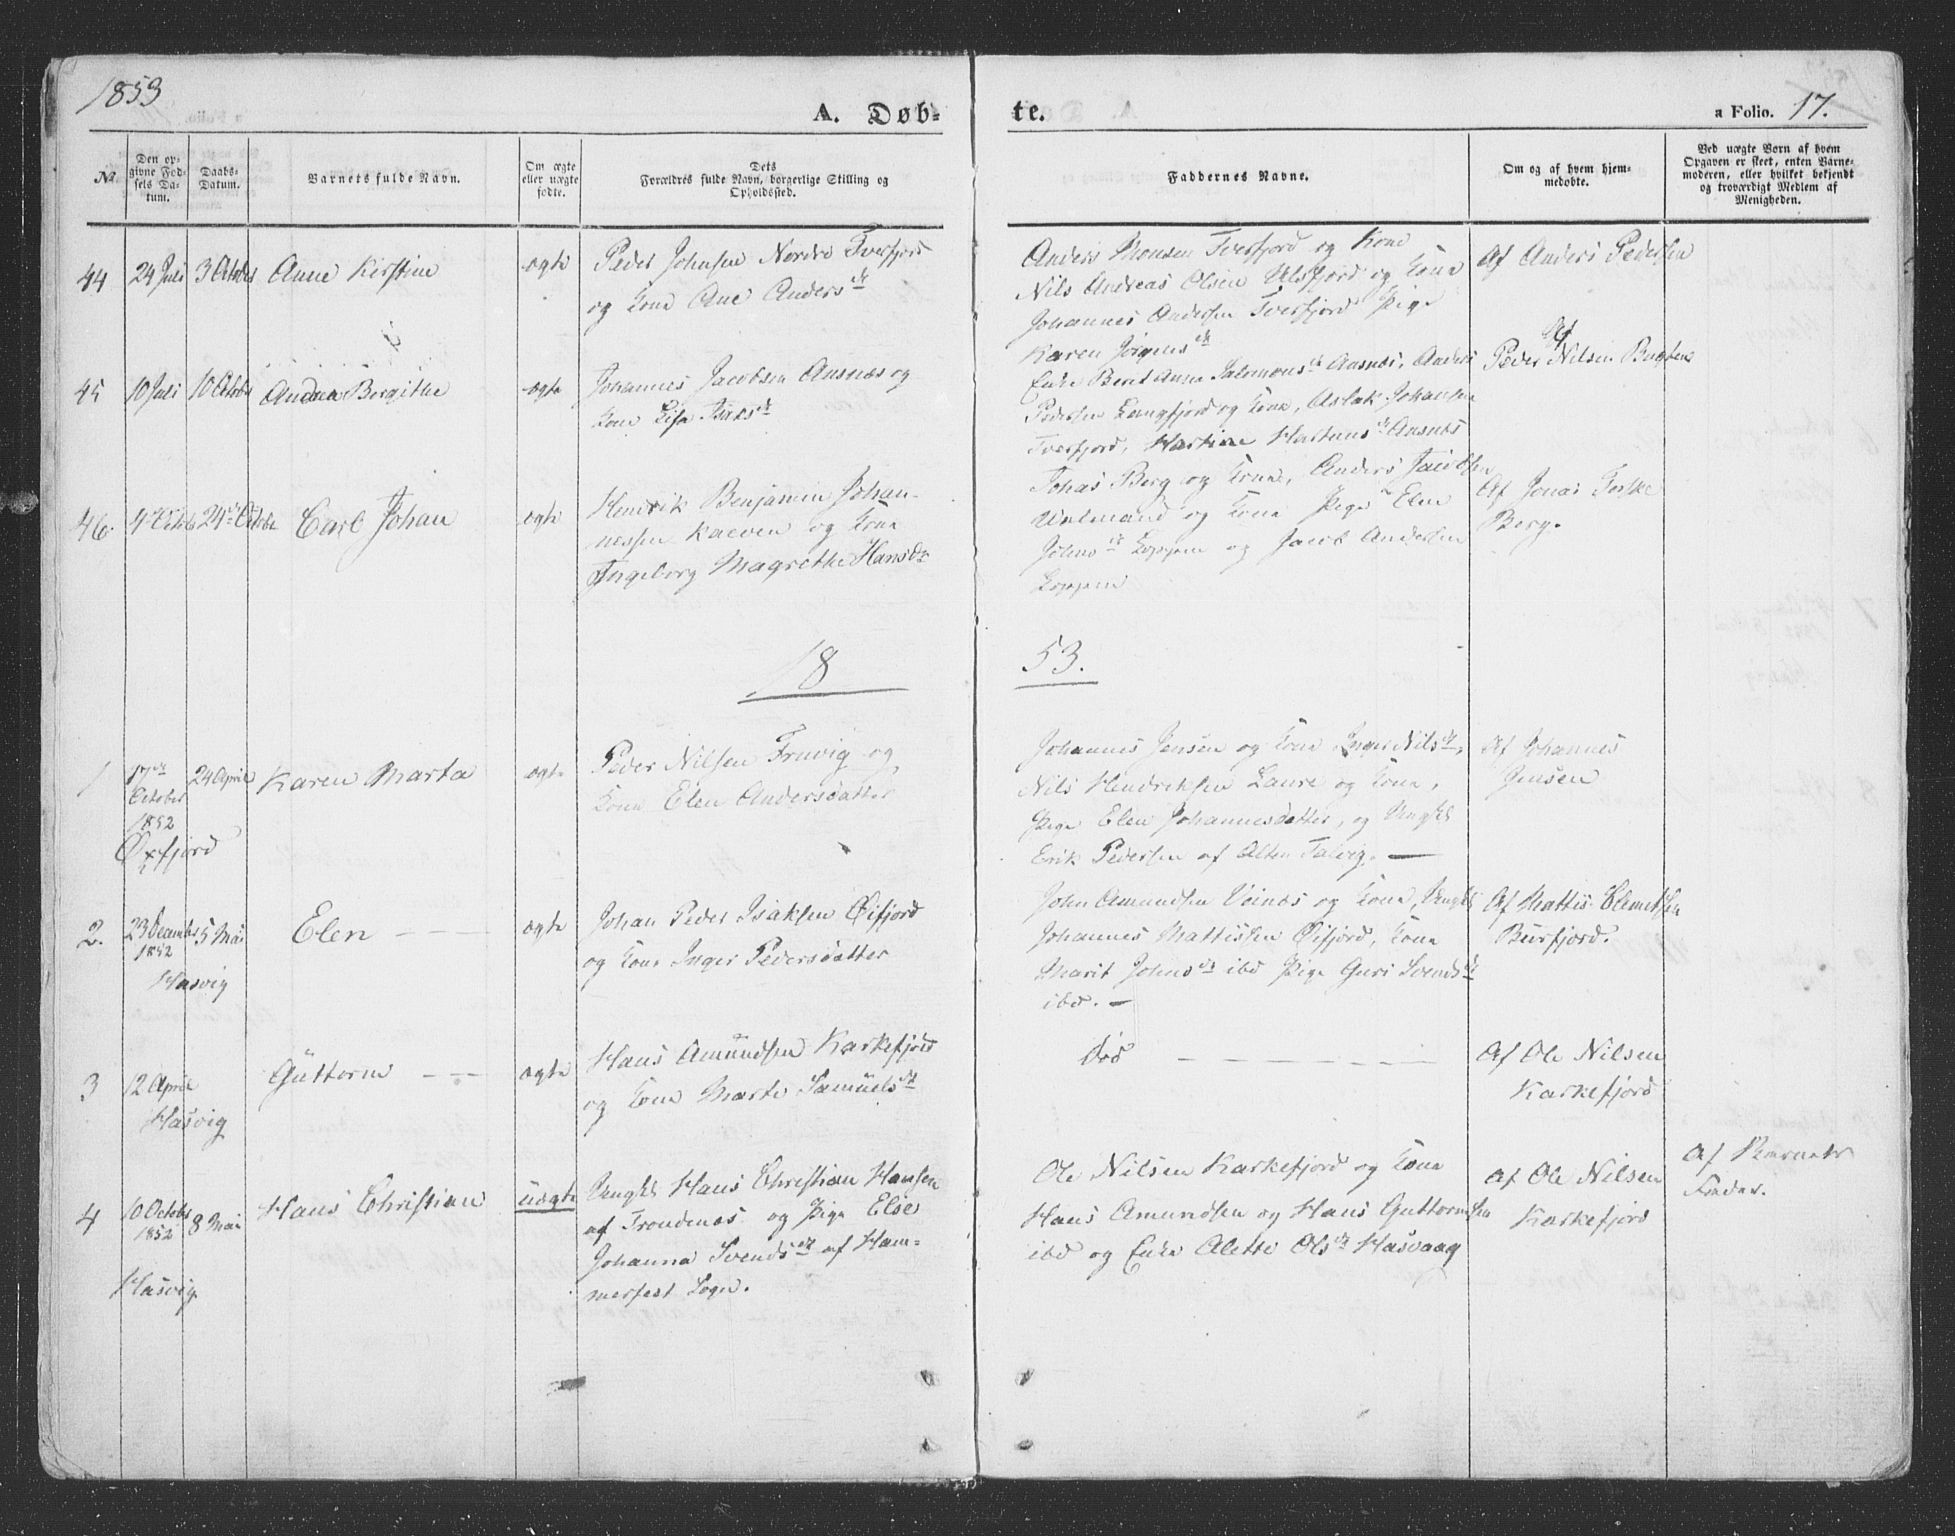 1853
A. Døb-
te.
a Folio. 17.
No.
Den op-
givne Fød-
sels Da-
tum.
Daabs-
Datum.
Barnets fulde Navn.
Om ægte
eller uægte
fødte.
Dets
Forældres fulde Navn, borgerlige Stilling og
Opholdssted.
Faddernes Navne.
Om og af hvem hjem-
medøbte.
Ved uægte Børn af hvem
Opgaven er skeet, enten Barne-
moderen, eller hvilket bekjendt
og troværdigt Medlem af
Menigheden.
44
24 Juli
3 Octobr
Anne Kirstine
ægte
Peder Johnsen Nordre Tverfjord
og Kone Ane Andersdt
Anders Monsen Tverfjord og Kone
Nils Andreas Olsen Ulsfjord og Kone
Johannes Andersen Tverfjord Pige
Karen Jörgensdt
Af Anders Pedersen
45
10 Juli
10 Octobr
Andrea Bergithe
ægte
Johannes Jacobsen Ausnæs og
Kone Lisa Isaksdt
Enke Berit Anna Salomonsdt Ausnæs, Anders
Pedersen Langfjord og Kone, Aslak Johansen
Tverfjord, Martine Martensdt Ausnæs
Af
Peder Nilsen Bugten
46.
4de Octob
24de Octobr
Carl Johan
ægte
Hendrik Benjamin Johan-
nessen Kaaven og Kone
Ingeborg Magrethe Hansdr
Johas Berg og Kone, Anders Jacobsen
og Kone Pige Elen
Johnsdt Loppen og Jacob Andersen
Loppen
Af Jonas
Berg.
18
53.
1
17de
October
1852
Øxfjord
24 April
Karen Marta
ægte
Peder Nilsen Truvig og
Kone Elen Andersdatter
Johannes Jensen og Kone Inger Nilsdt,
Nils Hendriksen Laure og Kone,
Pige Elen Johannesdatter, og Ungkl
Erik Pedersen af Alten Talvig. —
Af Johannes
Jensen
2.
23 Decembr
1852
Hasvig
5 Mai
Elen — — —
ægte
Johan Peder Isaksen Øifjord
og Kone Inger Pedersdatter
John Amundsen Veines og Kone, Ungkl
Johannes Mattissen Øifjord, Kone
Marit Johnsdt ibd Pige Guri Svendsdt
ibd. —
Af Mattis Clemetsen
Burfjord.
3
12 April
Hasvig
Guttorm — — —
ægte
Hans Amundsen Karkefjord
og Kone Marte Samuelsdt
død — — — — —
Af Ole Nilsen
Karkefjord
4
10 Octobr
1852
Hasvig
8 Mai
Hans Christian
uægte
Ungkl Hans Christian Hansen
af Trondenæs og Pige Else
Johanna Svendsdt af Ham-
merfest Sogn.
Ole Nilsen Karkefjord og Kone
Hans Amundsen og Hans Guttormsen
ibd og Enke Alette Olsdt Hasvaag
Af Ole Nilsen
Karkefjord
Af Barnets
Fader.